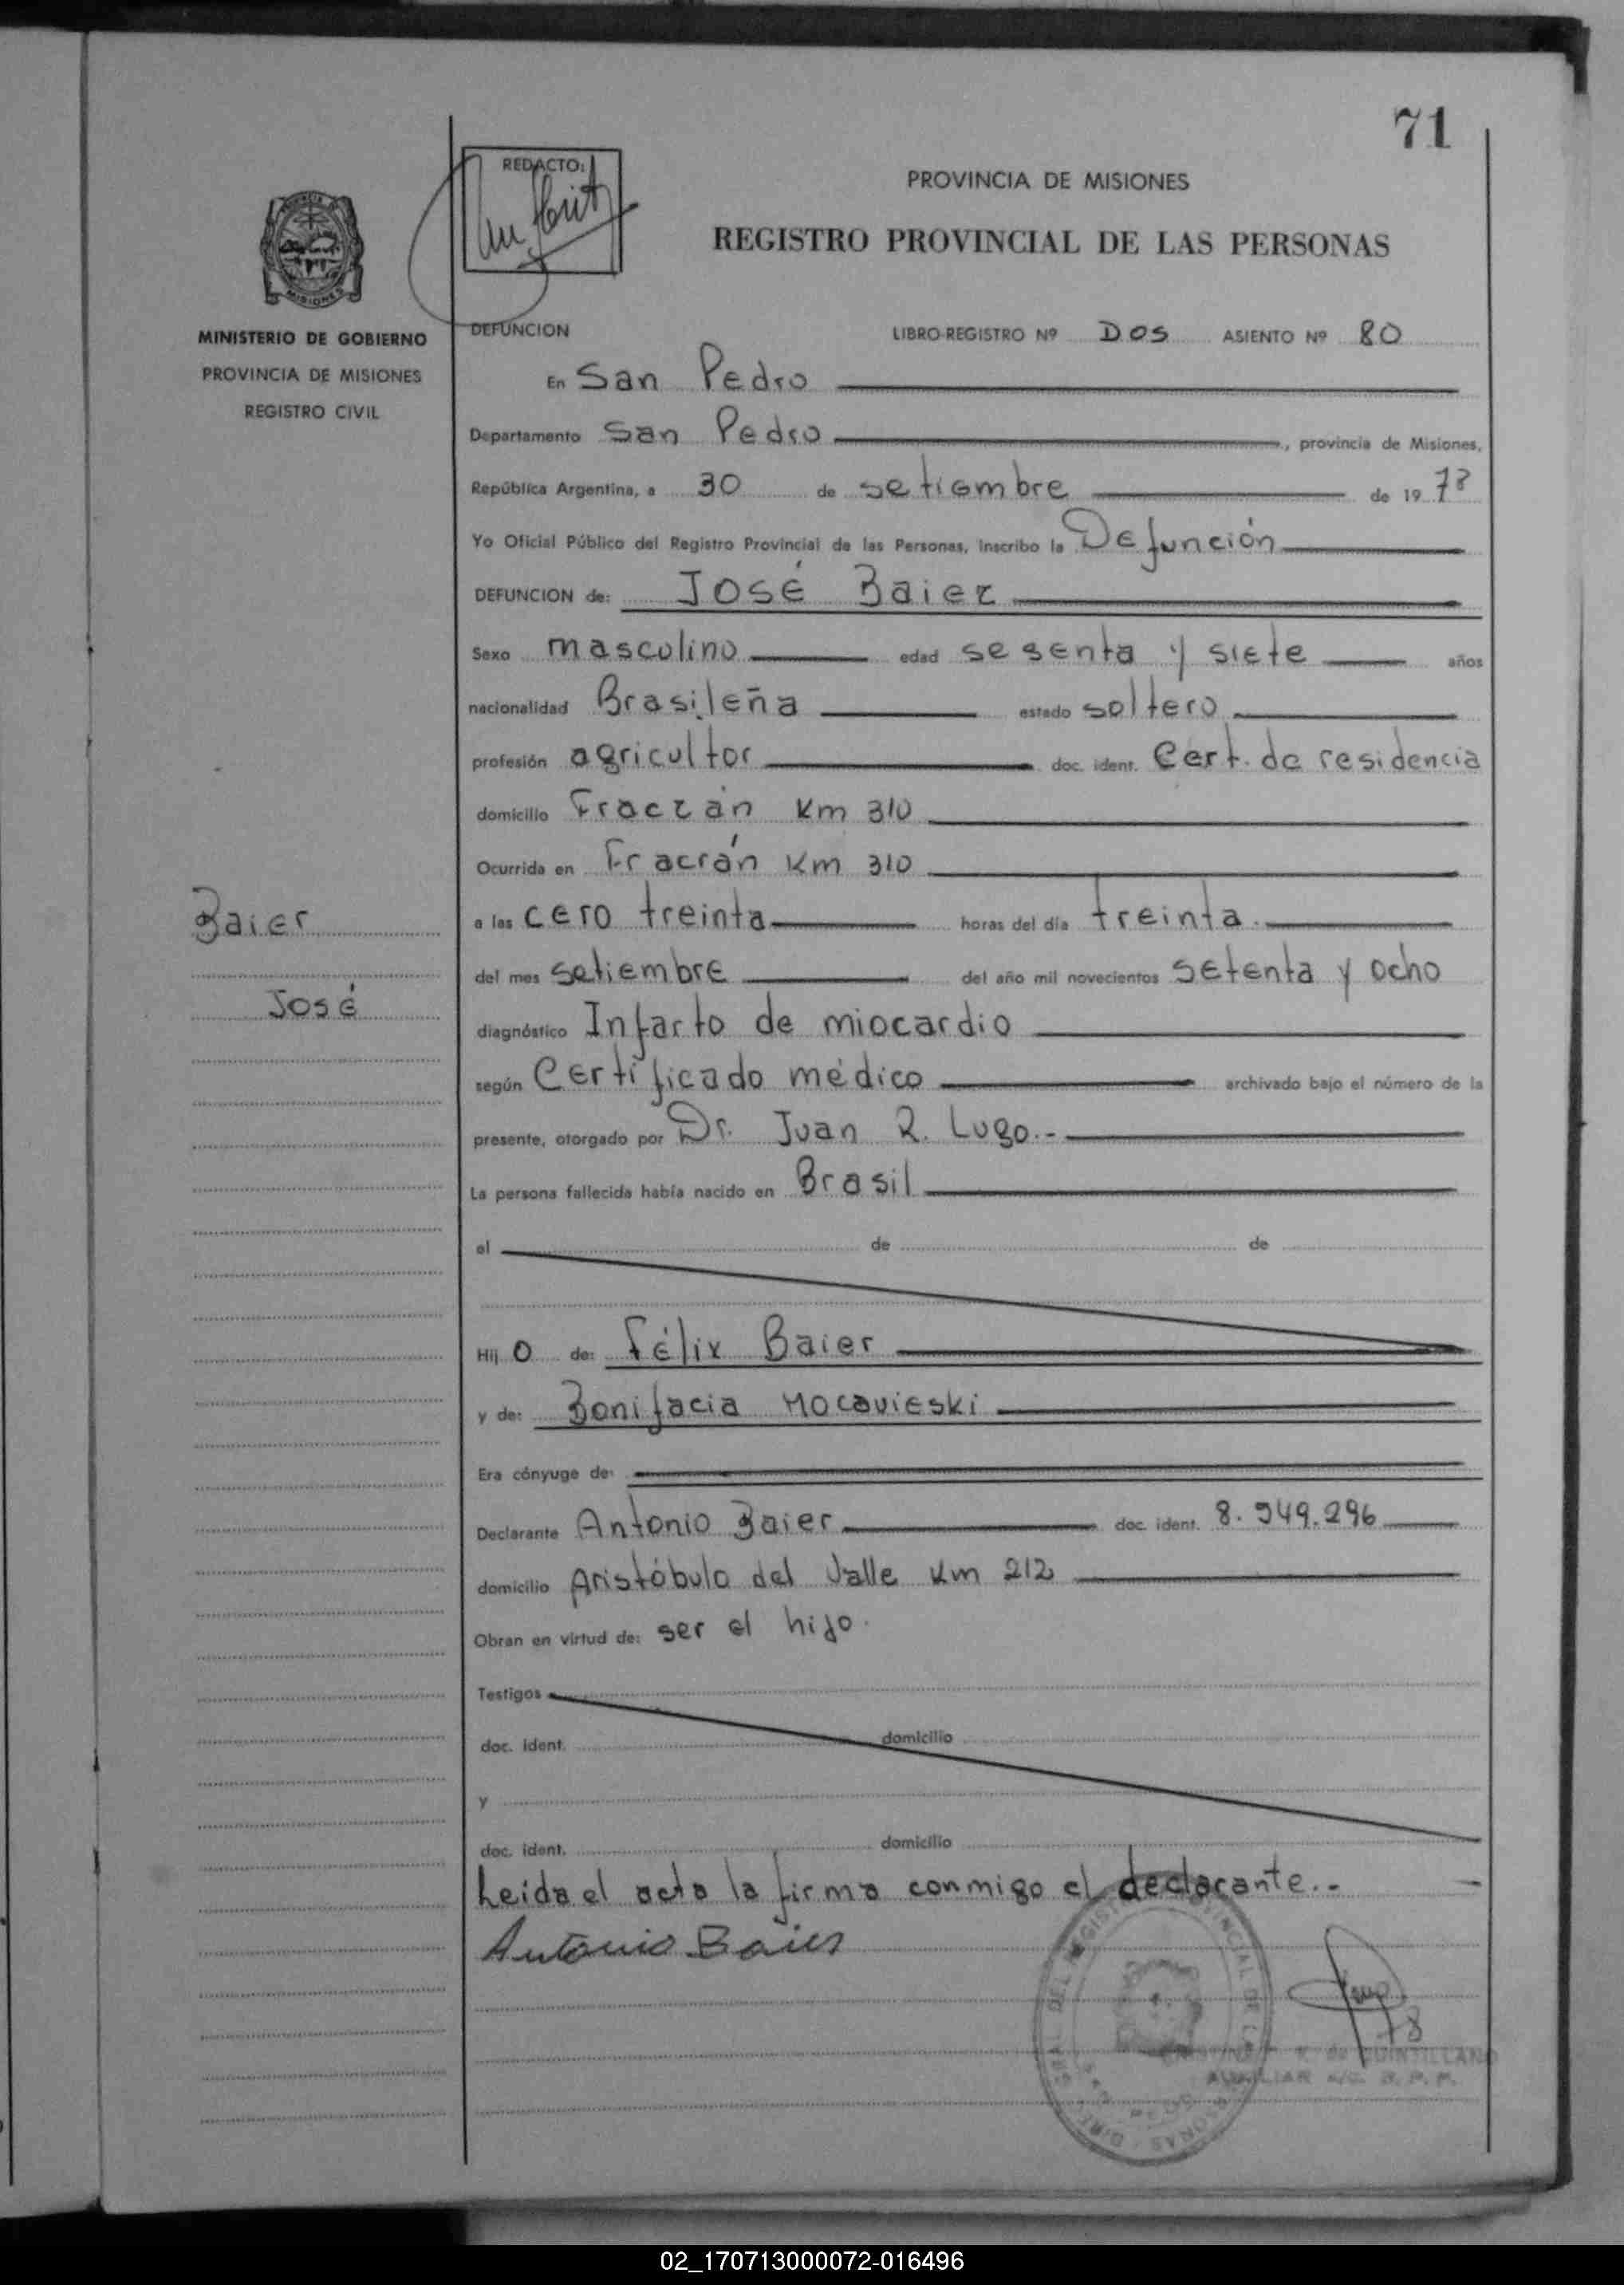 71
REDACTO:
PROVINCIA DE MISIONES
REGISTRO PROVINCIAL DE LAS PERSONAS
MINISTERIO DE GOBIERNO
PROVINCIA DE MISIONES
REGISTRO CIVIL
DEFUNCION LIBRO-REGISTRO Nº Dos ASIENTO Nº 80
En San Pedro
Departamento San Pedro, provincia de Misiones,
República Argentina, a 30 de setiembre de 1978
Yo Oficial Público del Registro Provincial de las Personas, inscribo la Defunción
DEFUNCION de: José Baier
Sexo masculino edad sesenta y siete años
nacionalidad Brasileña estado soltero
profesión agricultor doc. ident. Cert. de residencia
domicilio Fracrán Km 310
Ocurrida en Fracrán Km 310
Baier
José
a las cero treinta horas del día treinta.
del mes setiembre del año mil novecientos setenta y ocho
diagnóstico Infarto de miocardio
según Certificado médico archivado bajo el número de la
presente, otorgado por Dr. Juan R. Lugo.-
La persona fallecida había nacido en Brasil
el de de
Hij o de: Félix Baier
y de: Bonifacia Mocavieski
Era cónyuge de:
Declarante Antonio Baier doc. ident. 8.949.296
domicilio Aristóbulo del Valle Km 212
Obran en virtud de: ser el hijo.
Testigos
doc. ident. domicilio
y
doc. ident. domicilio
Leida el acta la firma conmigo el declarante.-
Antonio Baier
78
QUINTILLANO
AUXILIAR
02_170713000072-016496